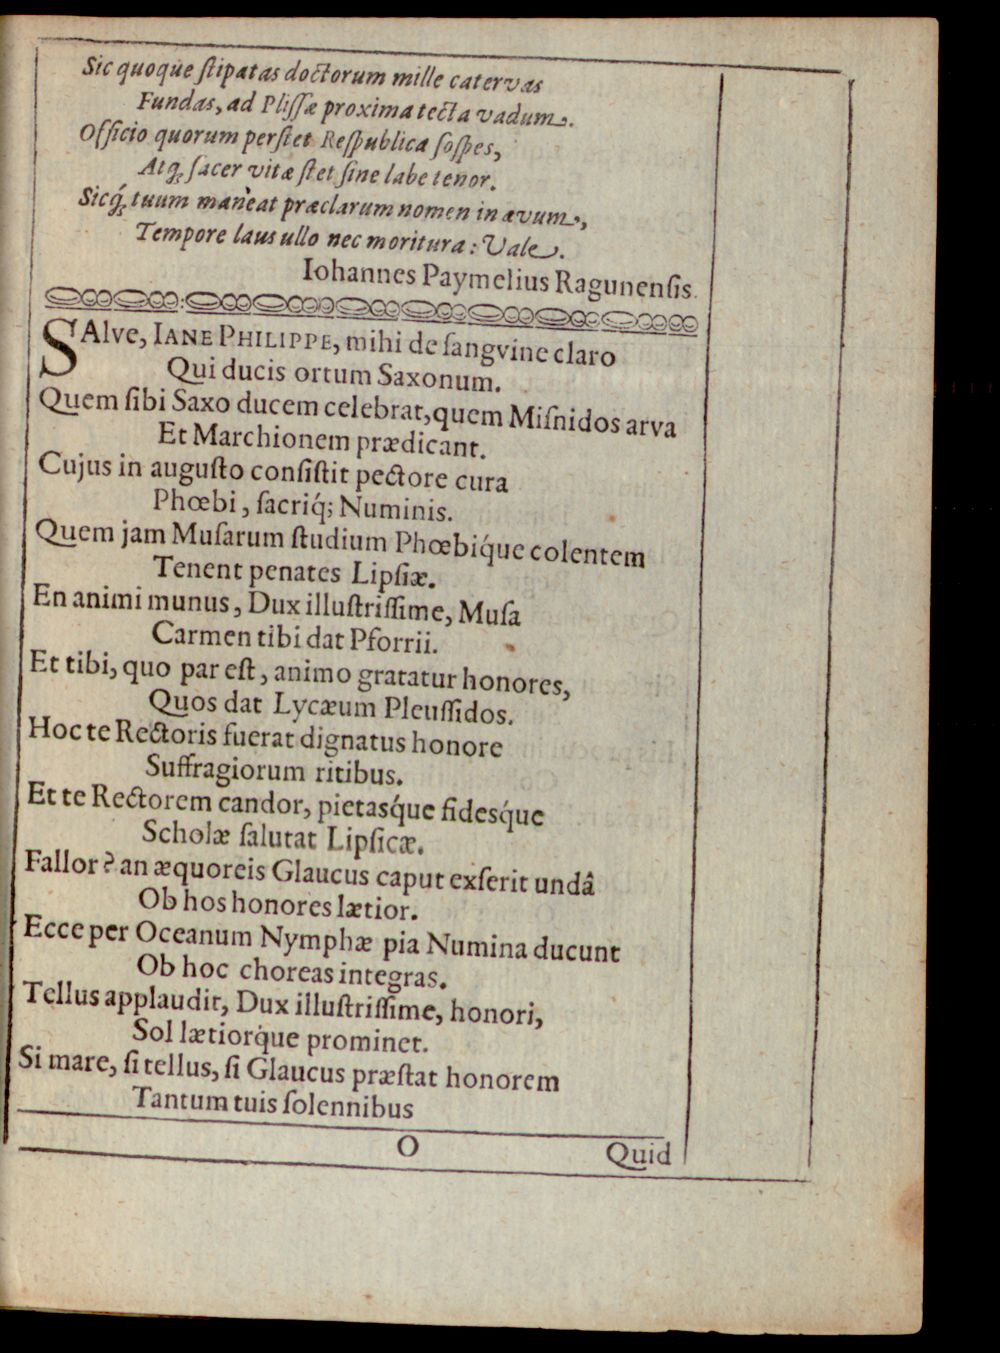 Sic quoque ſtipatas doctorum mille catervas
Fundas, ad Pliſſæ proxima tecta vadum.
Officio quorum perſtet Reſpublica ſoſpes,
Atq́; ſacer vitæ ſtet ſine labe tenor.
Sicq́; tuum maneat præclarum nomen in ævum,
Tempore laus ullo nec moritura: Vale.
Iohannes Paymelius Ragunenſis.
SAlve, IANE PHILIPPE, mihi de ſangvine claro
Qui ducis ortum Saxonum.
Quem ſibi Saxo ducem celebrat, quem Miſnidos arva
Et Marchionem prædicant.
Cujus in auguſto conſiſtit pectore cura
Phœbi, ſacriq́; Numinis.
Quem jam Muſarum ſtudium Phœbiq́ue colentem
Tenent penates Lipſiæ.
En animi munus, Dux illuſtriſſime, Muſa
Carmen tibi dat Pforrii.
Et tibi, quo par eſt, animo gratatur honores,
Quos dat Lycæum Pleuſſidos.
Hoc te Rectoris fuerat dignatus honore
Suffragiorum ritibus.
Et te Rectorem candor, pietasq́ue fidesq́ue
Scholæ ſalutat Lipſicæ.
Fallor? an æquoreis Glaucus caput exſerit undâ
Ob hos honores lætior.
Ecce per Oceanum Nymphæ pia Numina ducunt
Ob hoc choreas integras.
Tellus applaudit, Dux illuſtriſſime, honori,
Sol lætiorq́ue prominet.
Si mare, ſi tellus, ſi Glaucus præſtat honorem
Tantum tuis ſolennibus
O
Quid